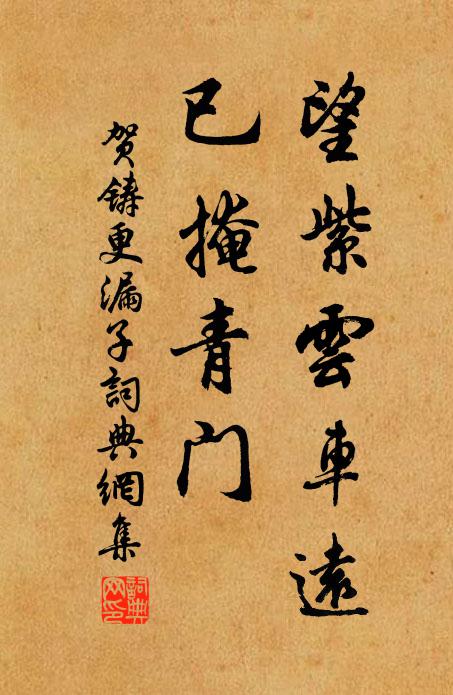 望紫雲車遠
已掩青門
賀鑄更漏子詞典網集
詞典网印